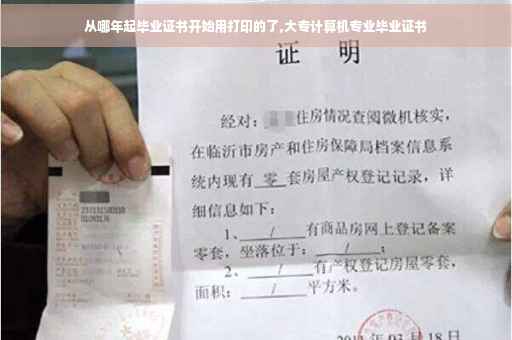 从哪年起毕业证书开始用打印的了,大专计算机专业毕业证书
证 明
经对: 住房情况查阅微机核实,
在临沂市房产和住房保障局档案信息系
统内现有 零 套房屋产权登记记录,详
细信息如下:
1、 / 有商品房网上登记备案
零套,坐落位于: / ;
2、 / 有产权登记房屋零套,
面积: / 平方米。
03月18日